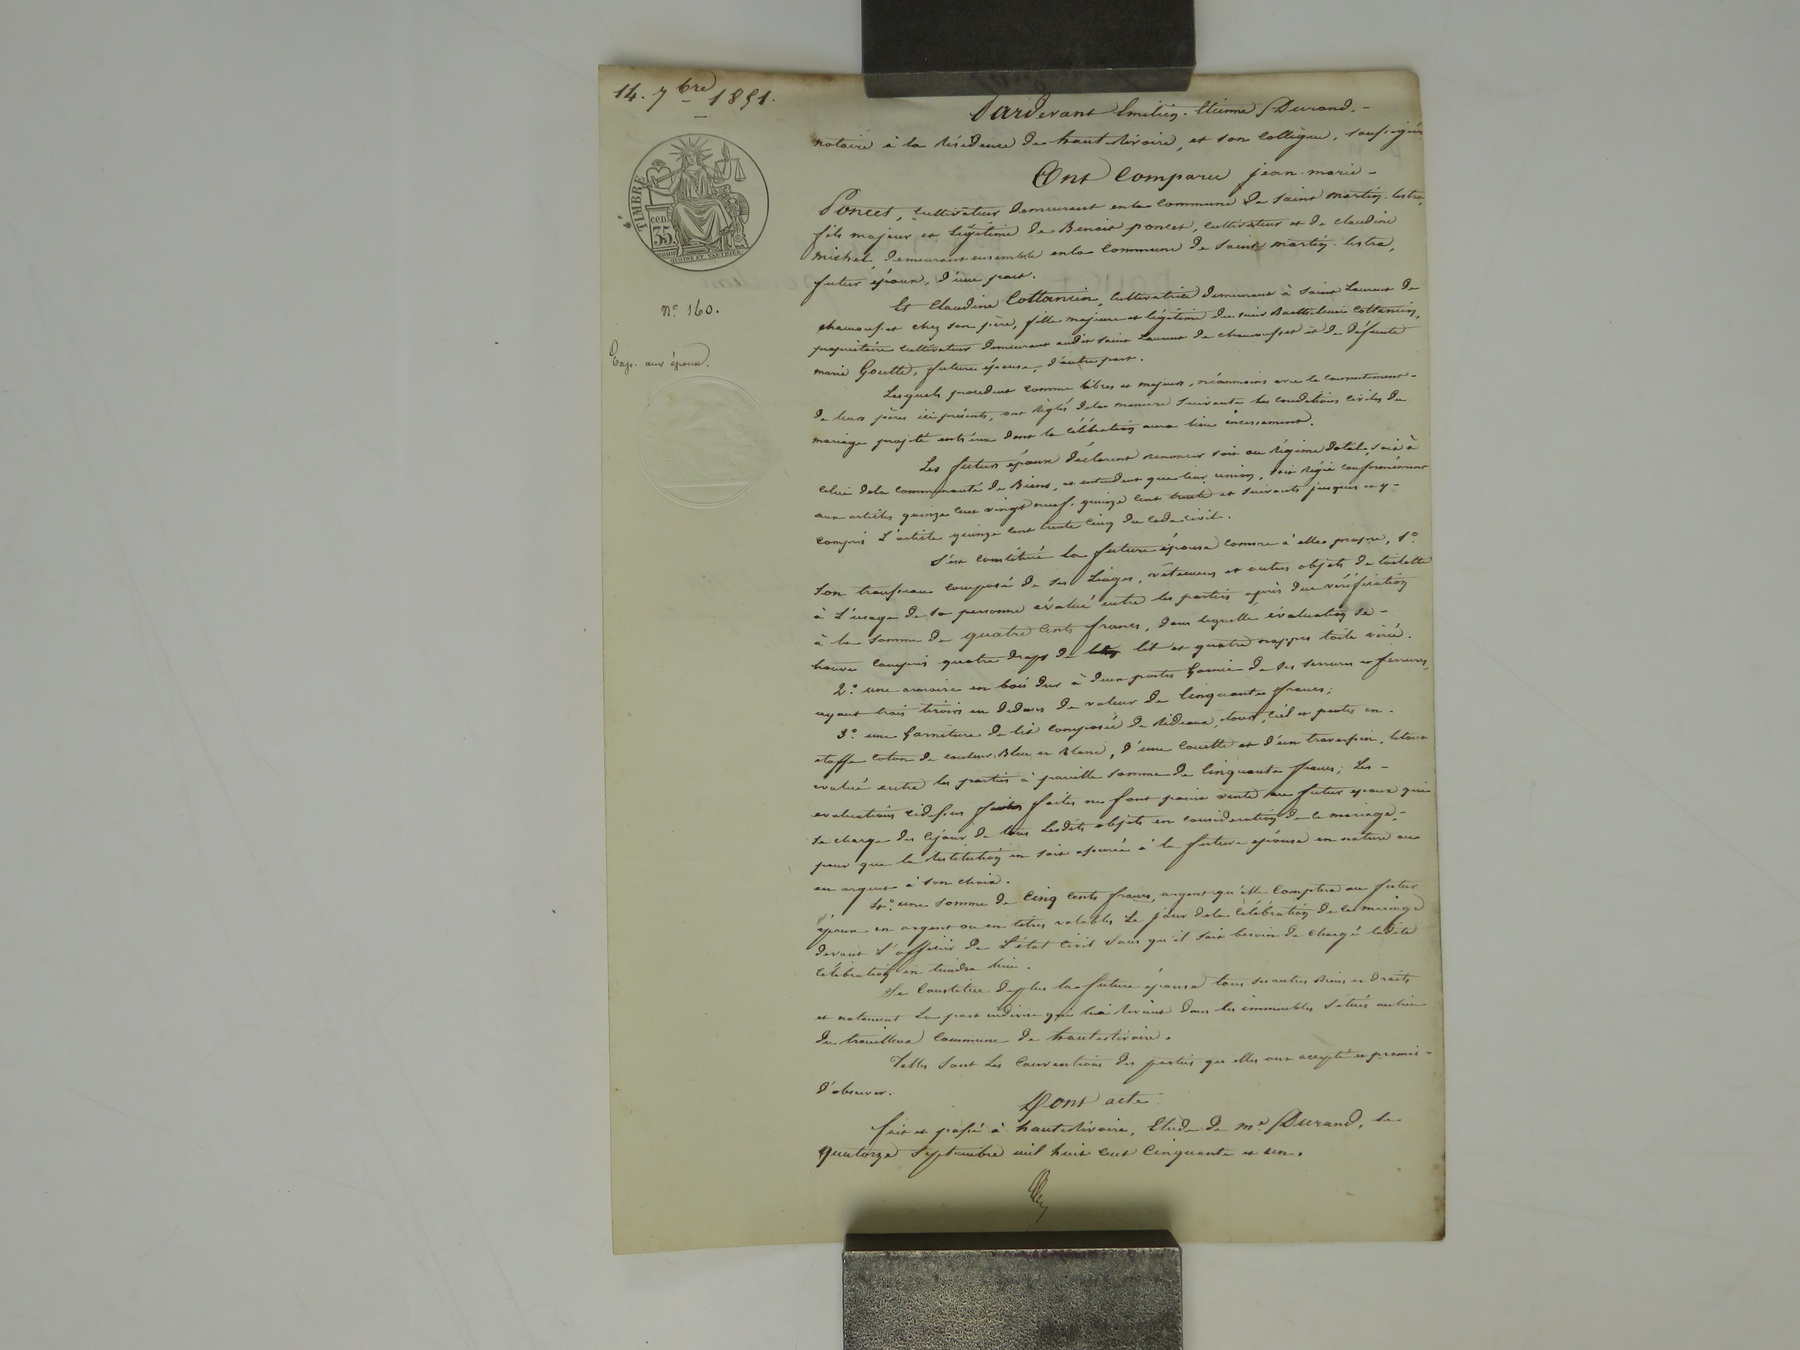 14. 7bre 1851.
TIMBRE
cen.
35
QUINE ET VAUTHIER
n° 160.
Exp. aux époux.
Pardevant Emilien Etienne Durand,
notaire à la résidence de hauterivoire, et son collègue, soussignés
Ont Comparu jean marie
Poncet, cultivateur demeurant en la commune de saint martin lestra,
fils majeur et légitime de Benoit poncet, cultivateur et de claudine
michel, demeurant ensemble en la commune de saint martin lestra,
futur époux, d'une part.
Et Claudine Cottancin, cultivatrice demeurant à saint Laurent de
chamousset chez son père, fille majeure et légitime de sieur Barthelemi Cottancin,
propriétaire cultivateur demeurant audit saint Laurent de chamousset et de défunte
marie Goutte, future épouse, d'autre part.
Lesquels procédant comme libres et majeurs, néanmoins avec le consentement
de leurs pères ici présents, ont réglés de la manière suivante les conditions civiles du
mariage projeté entr'eux dont la célébration aura lieu incessamment.
Les futurs époux déclarent renoncer soit au régime dotal, soit à
celui de la communauté de Biens, et entendent que leur union, soit régie conformément
aux articles quinze cent vingt neuf, quinze cent trente et suivants jusques et y
compris L'article quinze cent trente cinq du code civil.
S'est constitué la future épouse comme à elle propre, 1°
Son trousseau composé de ses Linges, vêtements et autres objets de toilette
à L'usage de sa personne évalué entre les parties après due vérification
à la somme de quatre cents francs, dans laquelle évaluation se
trouve compris quatre draps de lit et quatre nappes toile
2° une armoire en bois dur à deux portes Garnie de ses serrures et ferrures,
ayant trois tiroirs en dedans de valeur de Cinquante francs;
3° une Garniture de lit composée de Rideaux, tour, ciel et pentes en
etoffe coton de couleur Bleu et Blanc, d'une couette et d'un traversin, le tout
evalué entre les parties à pareille somme de Cinquante francs; Les
evaluations cidessus faites ne font point vente au futur epoux qui
se charge dès cejour de tous Lesdits objets en considération de ce mariage,
pour que la restitution en soit assurée à la future épouse en nature ou
en argent à son choix.
4° une somme de Cinq cents francs, argent qu'elle Comptera au futur
époux en argent ou en titres valables Le jour de la célébration de ce mariage
devant L'officier de L'état civil sans qu'il soit besoin de chargé ladite
Célébration en tiendra lieu.
Se Constitue deplus la future épouse tous ses autres Biens et droits
et notament La part indivise qui lui revient dans les immeubles situés au lieu
du commune de hauterivoire.
Telles sont Les Conventions des parties qu'elles ont accepté et promis
d'observer.
Dont acte.
fait et passé à hauterivoire, Etude de me. Durand, le
quatorze septembre mil huit cent Cinquante et un.